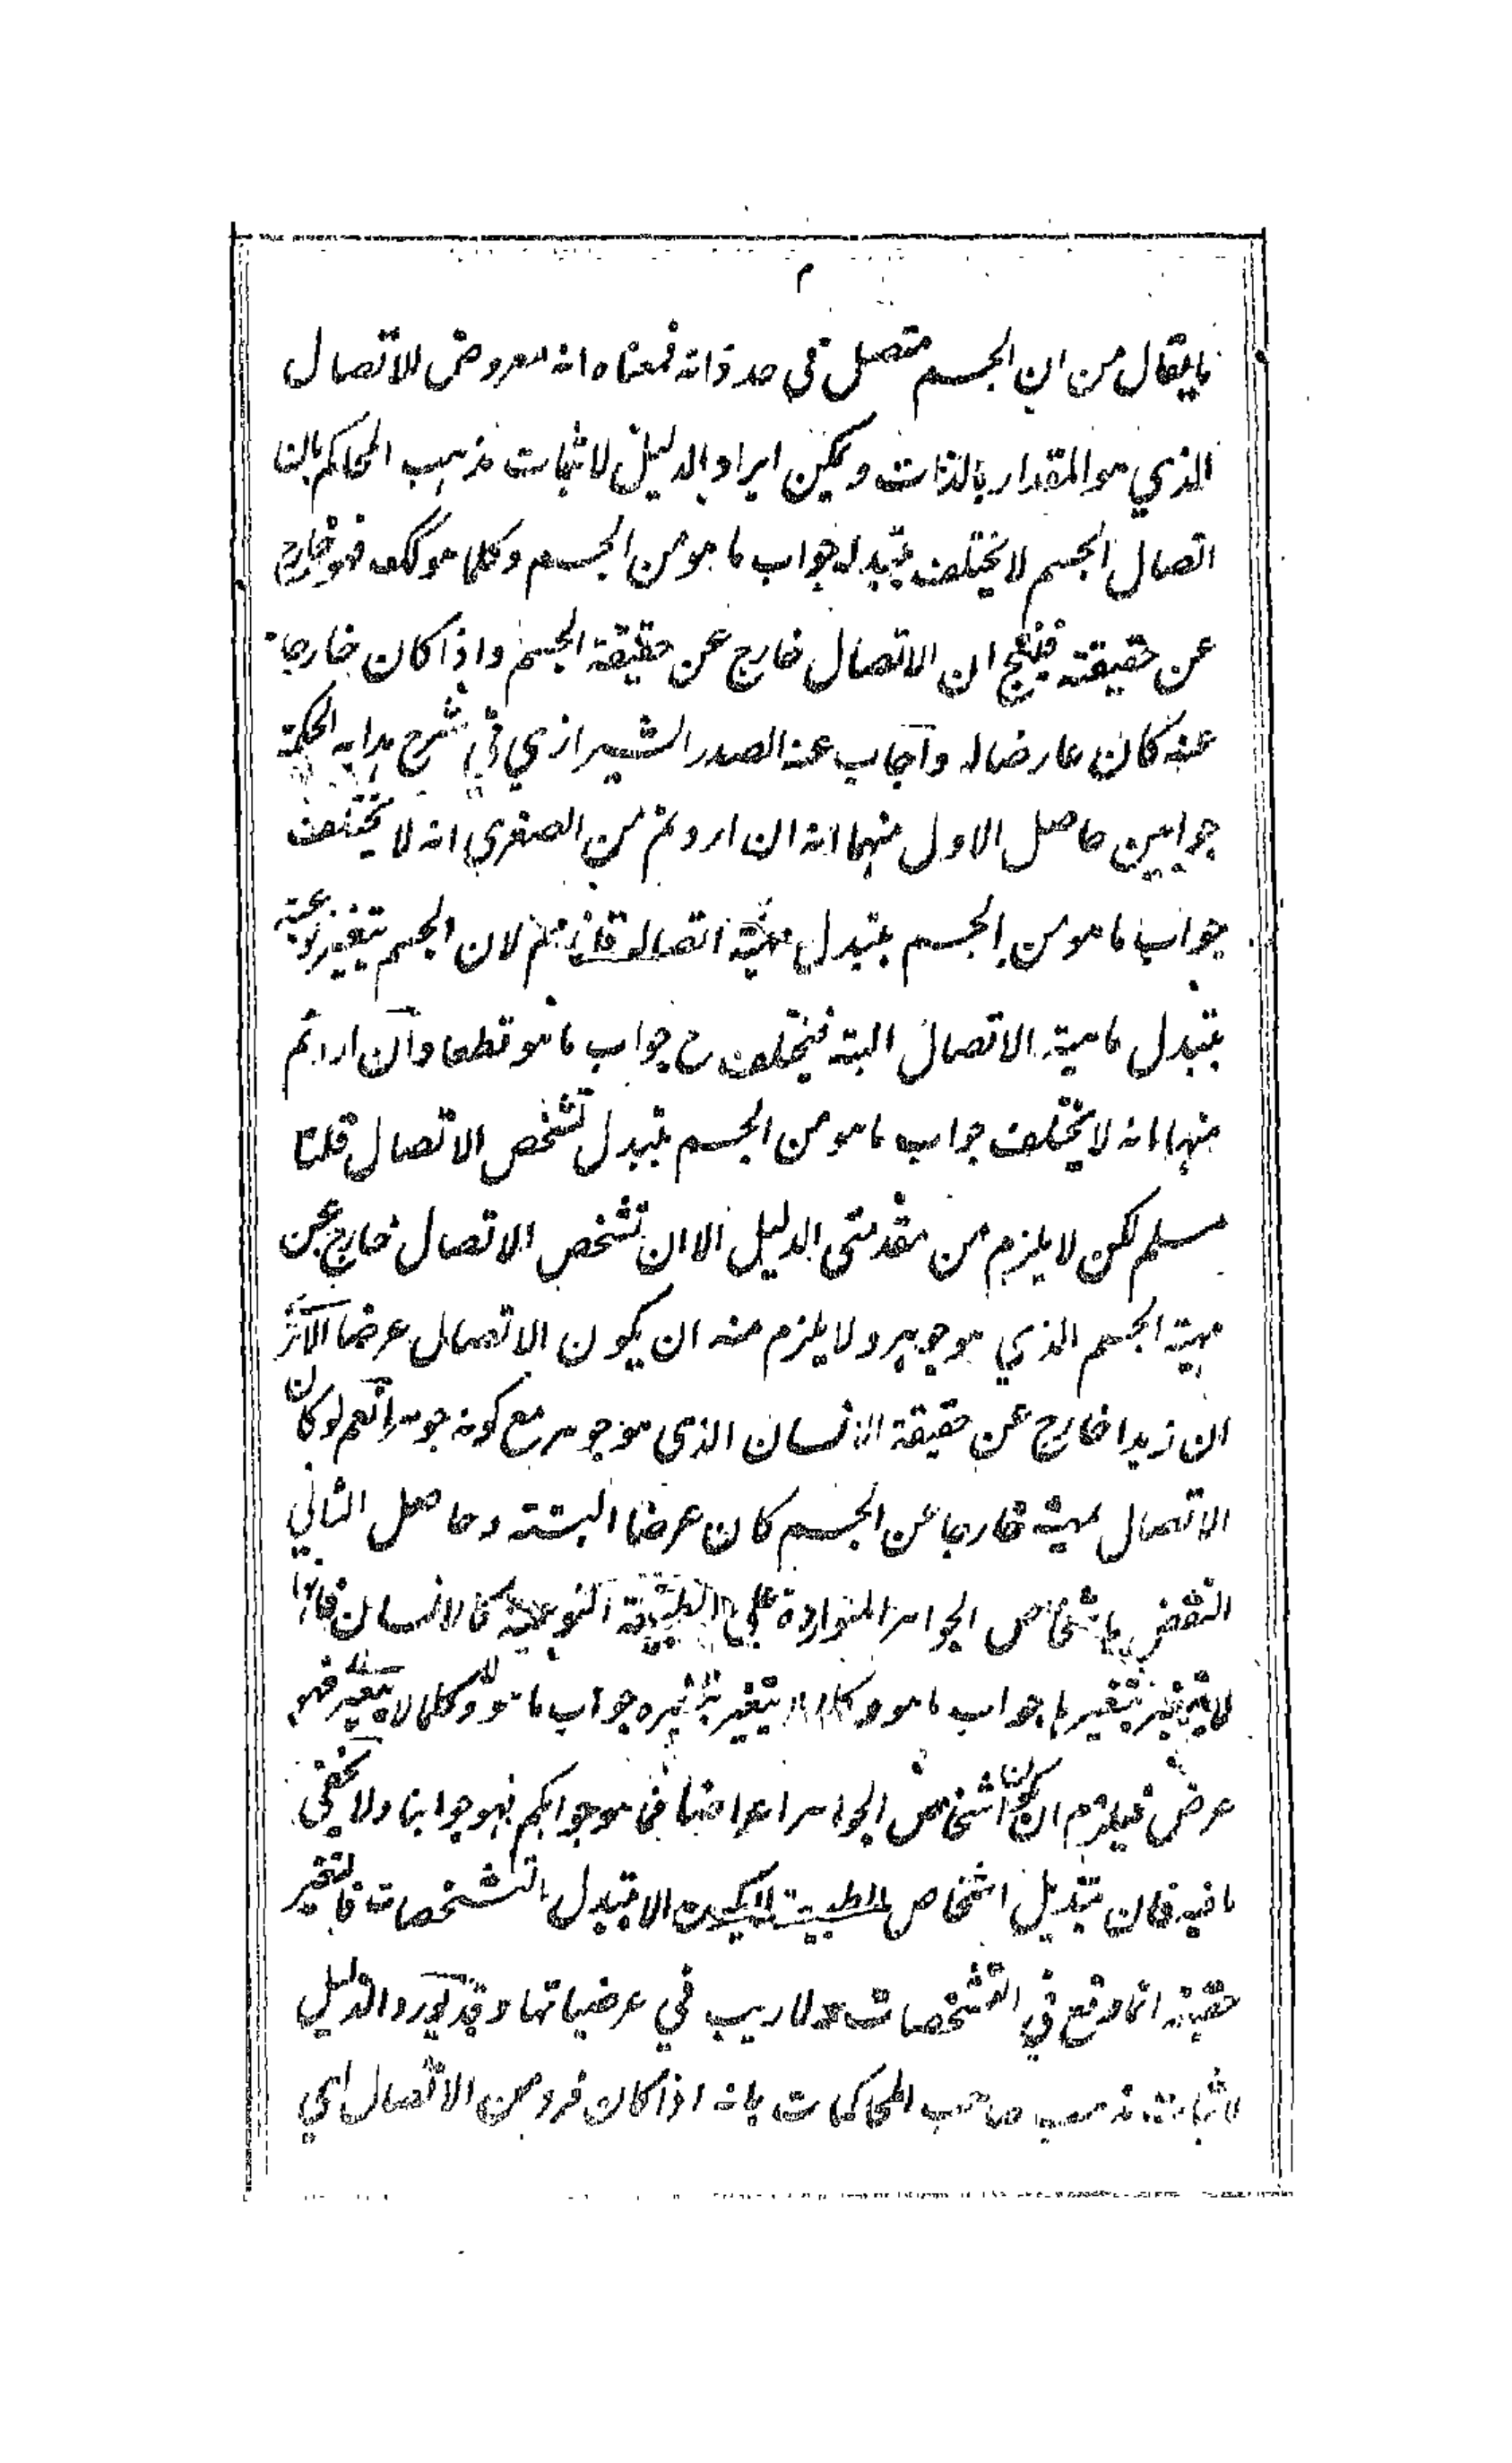 م
ما يقال من ان الجسم متصل في حد ذاته فمعناه انه معروض للاتصال
الذي هو المقدار بالذات ويمكن ايراد الدليل لاثبات مذهب المحاكم بان
اتصال الجسم لا يختلف بتبدله جواب ما هو من الجسم وكلما هو كك فهو خارج
عن حقيقته فينتج ان الاتصال خارج عن حقيقة الجسم واذا كان خارجا
عنه كان عارضا له واجاب عنه الصدر الشيرازي في شرح هداية الحكمة
جوابين حاصل الاول منهما انه ان اردتم من الصغرى انه لا يختلف
جواب ما هو من الجسم بتبدل مهية اتصاله لان الجسم يتغير نوعيته
بتبدل ماهية الاتصال البتة فيختلف ح جواب ما هو قطعا وان اردتم
منها انه لا يختلف جواب ما هو من الجسم بتبدل تشخص الاتصال قلنا
مسلم لكن لا يلزم من مقدمتي الدليل الا ان تشخص الاتصال خارج عن
مهية الجسم الذي هو جوهر ولا يلزم منه ان يكون الاتصال عرضا الا تر
ان زيدا خارج عن حقيقة الانسان الذي هو جوهر مع كونه جوهرا نعم لو كان
الاتصال بمهيته خارجا عن الجسم كان عرضا البتة وحاصل الثاني
النقض باشخاص الجواهر المتواردة على الطبيعة النوعية كالانسان فانها
لا يتغير بتغيرها جواب ما هو وكلما لا يتغير بتغيره جواب ما هو وكلما لا يتغير فهو
عرض فيلزم ان يكون اشخاص الجواهر اعراضا فما هو جوابكم فهو جوابنا ولا يخفى
ما فيه فان تبديل اشخاص الطبيعة لا يكون الا بتبدل التشخصات فالتغير
حقيقة انما وقع في التشخصات ولا ريب في عرضياتها وقد يورد الدليل
لاثبات مذهب صاحب المحاكمات بانه اذا كان فرد من الاتصال اي